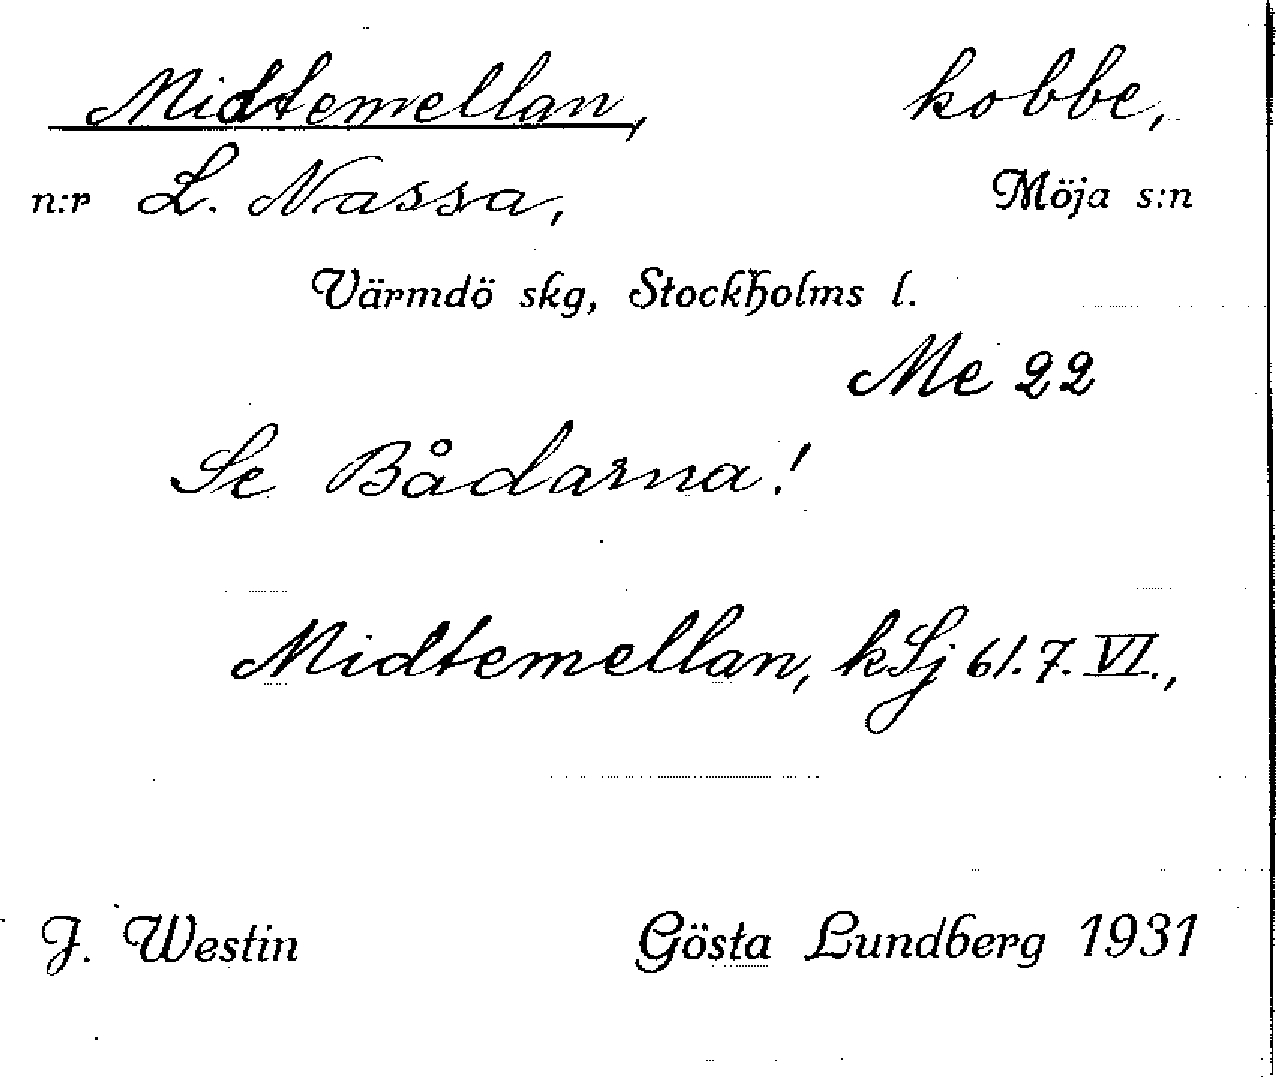 Midtemellan, kobbe,
n:r L. Nassa, Möja s:n
Värmdö skg, Stockholms l.
Me 22
Se Bådarna!
Midtemellan, kSj 61. 7. VI.,
J. Westin Gösta Lundberg 1931